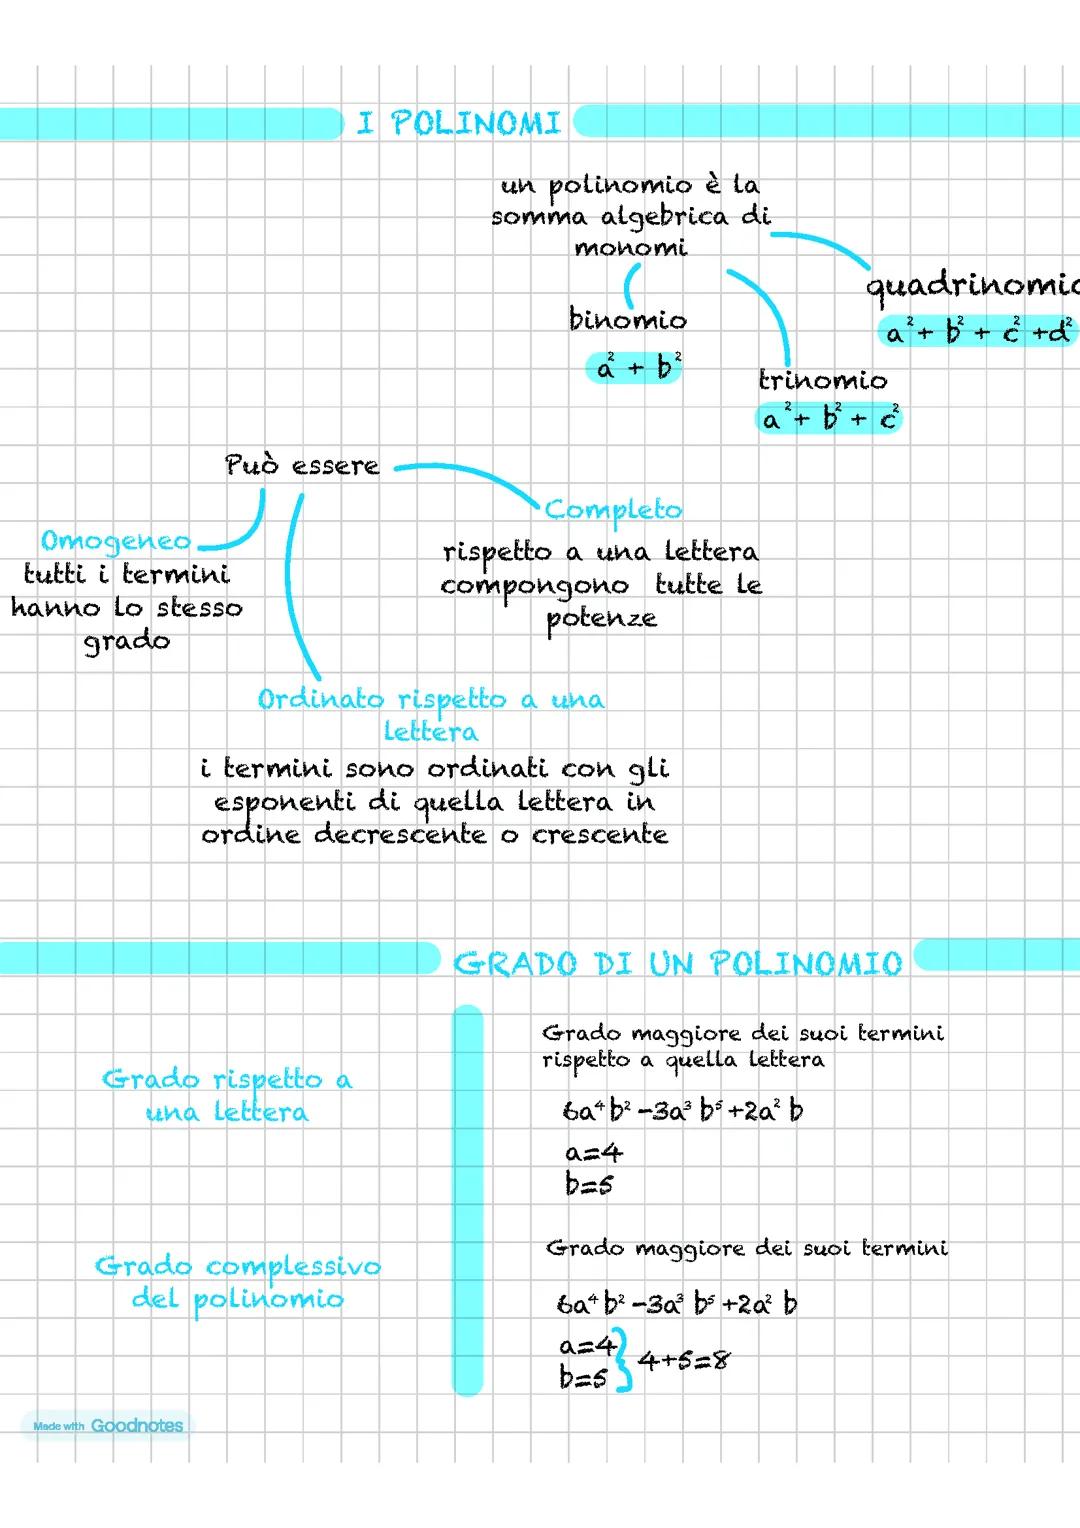 I POLINOMI
un polinomio è la
somma algebrica di
monomi
binomio
a² + b²
trinomio
a² + b² + c²
quadrinomio
a² + b² + c² + d²
Può essere
Omogeneo
tutti i termini
hanno lo stesso
grado
Completo
rispetto a una lettera
compongono tutte le
potenze
Ordinato rispetto a una
lettera
i termini sono ordinati con gli
esponenti di quella lettera in
ordine decrescente o crescente
GRADO DI UN POLINOMIO
Grado rispetto a
una lettera
Grado maggiore dei suoi termini
rispetto a quella lettera
6a⁴b² -3a³ b⁵ +2a² b
a=4
b=5
Grado complessivo
del polinomio
Grado maggiore dei suoi termini
6a⁴b² -3a³ b⁵ +2a² b
a=4
b=5
4+5=8
Made with Goodnotes